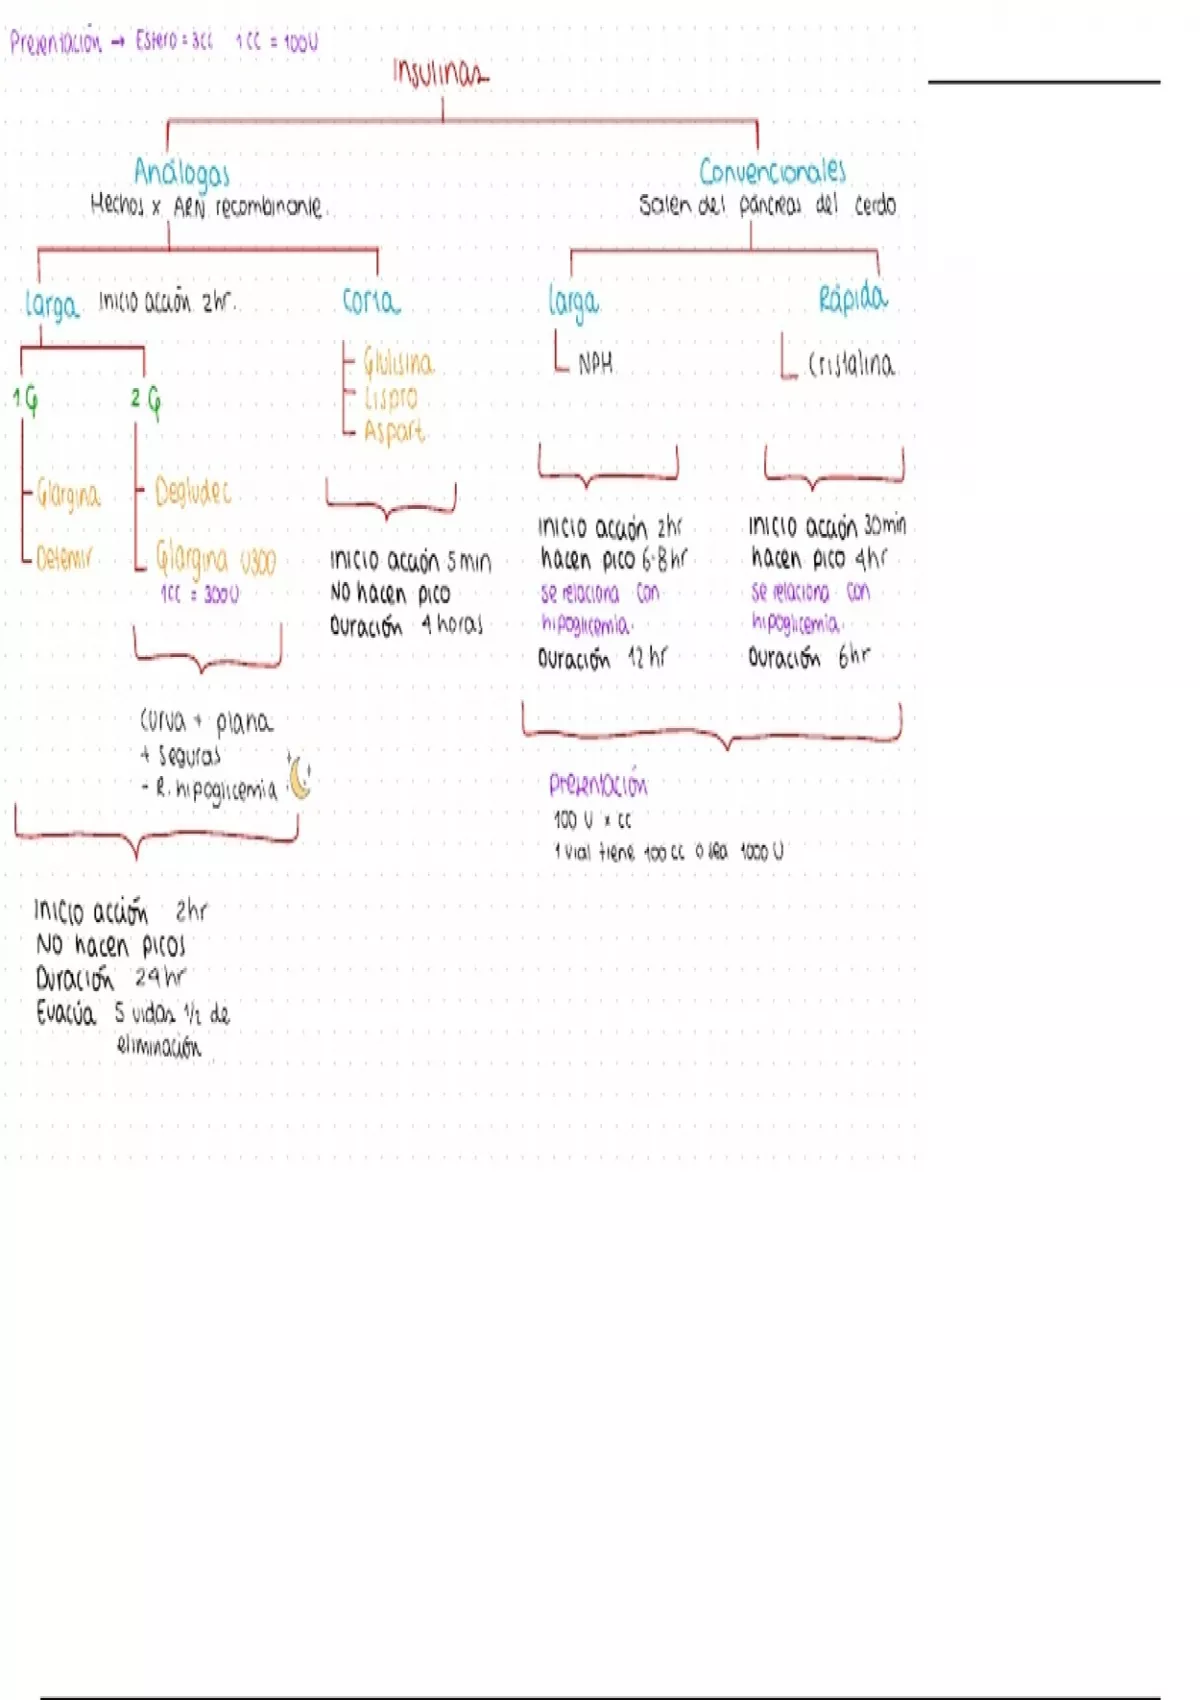 Presentación → Esfero = 3cc 1cc = 100U
Insulinas
Análogas
Hechos x ARN recombinante.
Convencionales
Salen del páncreas del cerdo
Larga Inicio acción 2hr.
Corta
Larga
Rápida
Glulisina
Lispro
Aspart
NPH
Cristalina
1G
2G
Glargina
Detemir
Degludec
Glargina U300
1cc = 300U
Inicio acción 5min
No hacen pico
Duración 4 horas
Inicio acción 2hr
hacen pico 6-8hr
se relaciona con
hipoglicemia.
Duración 12hr
Inicio acción 30min
hacen pico 4hr
se relaciona con
hipoglicemia.
Duración 6hr
Curva + plana
+ seguras
- R. hipoglicemia
Presentación
100 U x cc
1 vial tiene 100 cc o sea 1000 U
Inicio acción 2hr
No hacen picos
Duración 24hr
Evacúa 5 vidas 1/2 de
eliminación